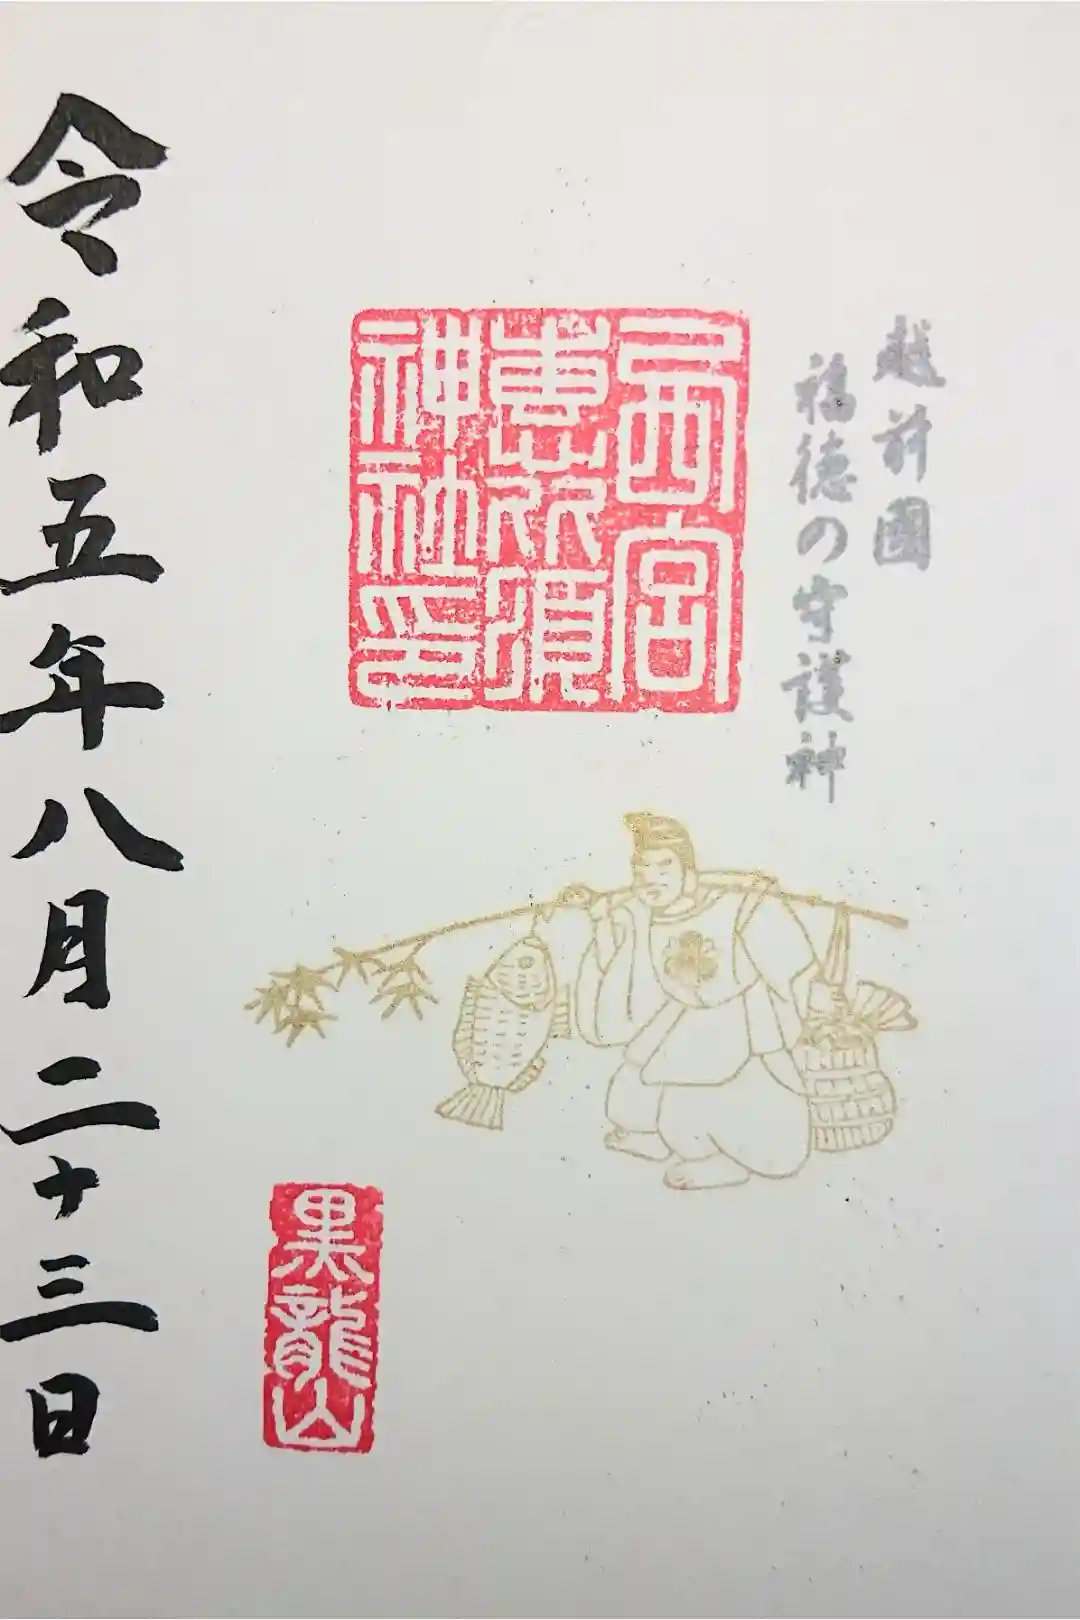 越前國
福徳の守護神
西宮
恵比須
神社印
黒龍山
令和五年八月二十三日